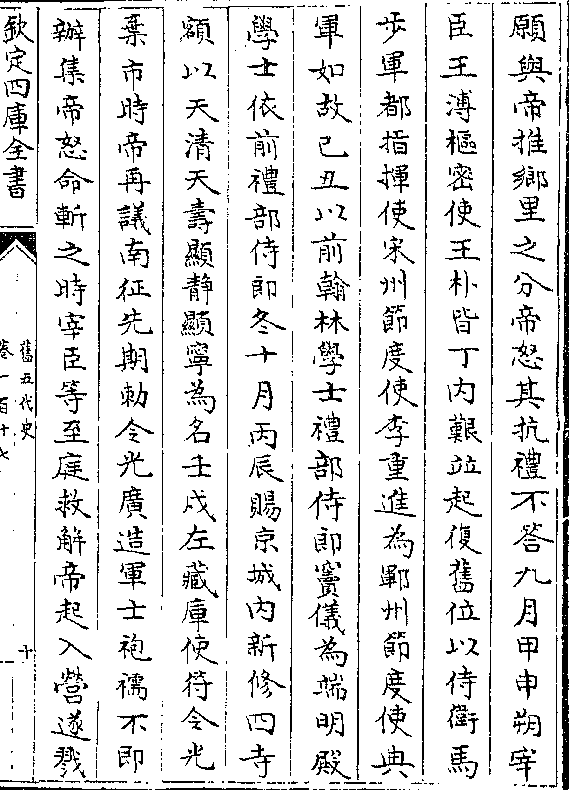 願與帝推鄉里之分帝怒其抗禮不答九月甲申朔宰
臣王溥樞密使王朴皆丁内艱竝起復舊位以侍衛馬
步軍都指揮使宋州節度使李重進為鄆州節度使典
軍如故己丑以前翰林學士禮部侍郎竇儀為端明殿
學士依前禮部侍郎冬十月丙辰賜京城内新修四寺
額以天清天壽顯静顯寧為名壬戌左藏庫使符令光
棄市時帝再議南征先期勅令光廣造軍士袍襦不即
辦集帝怒命斬之時宰臣等至庭救解帝起入營遂戮
欽定四庫全書
舊五代史
卷一百十七
十